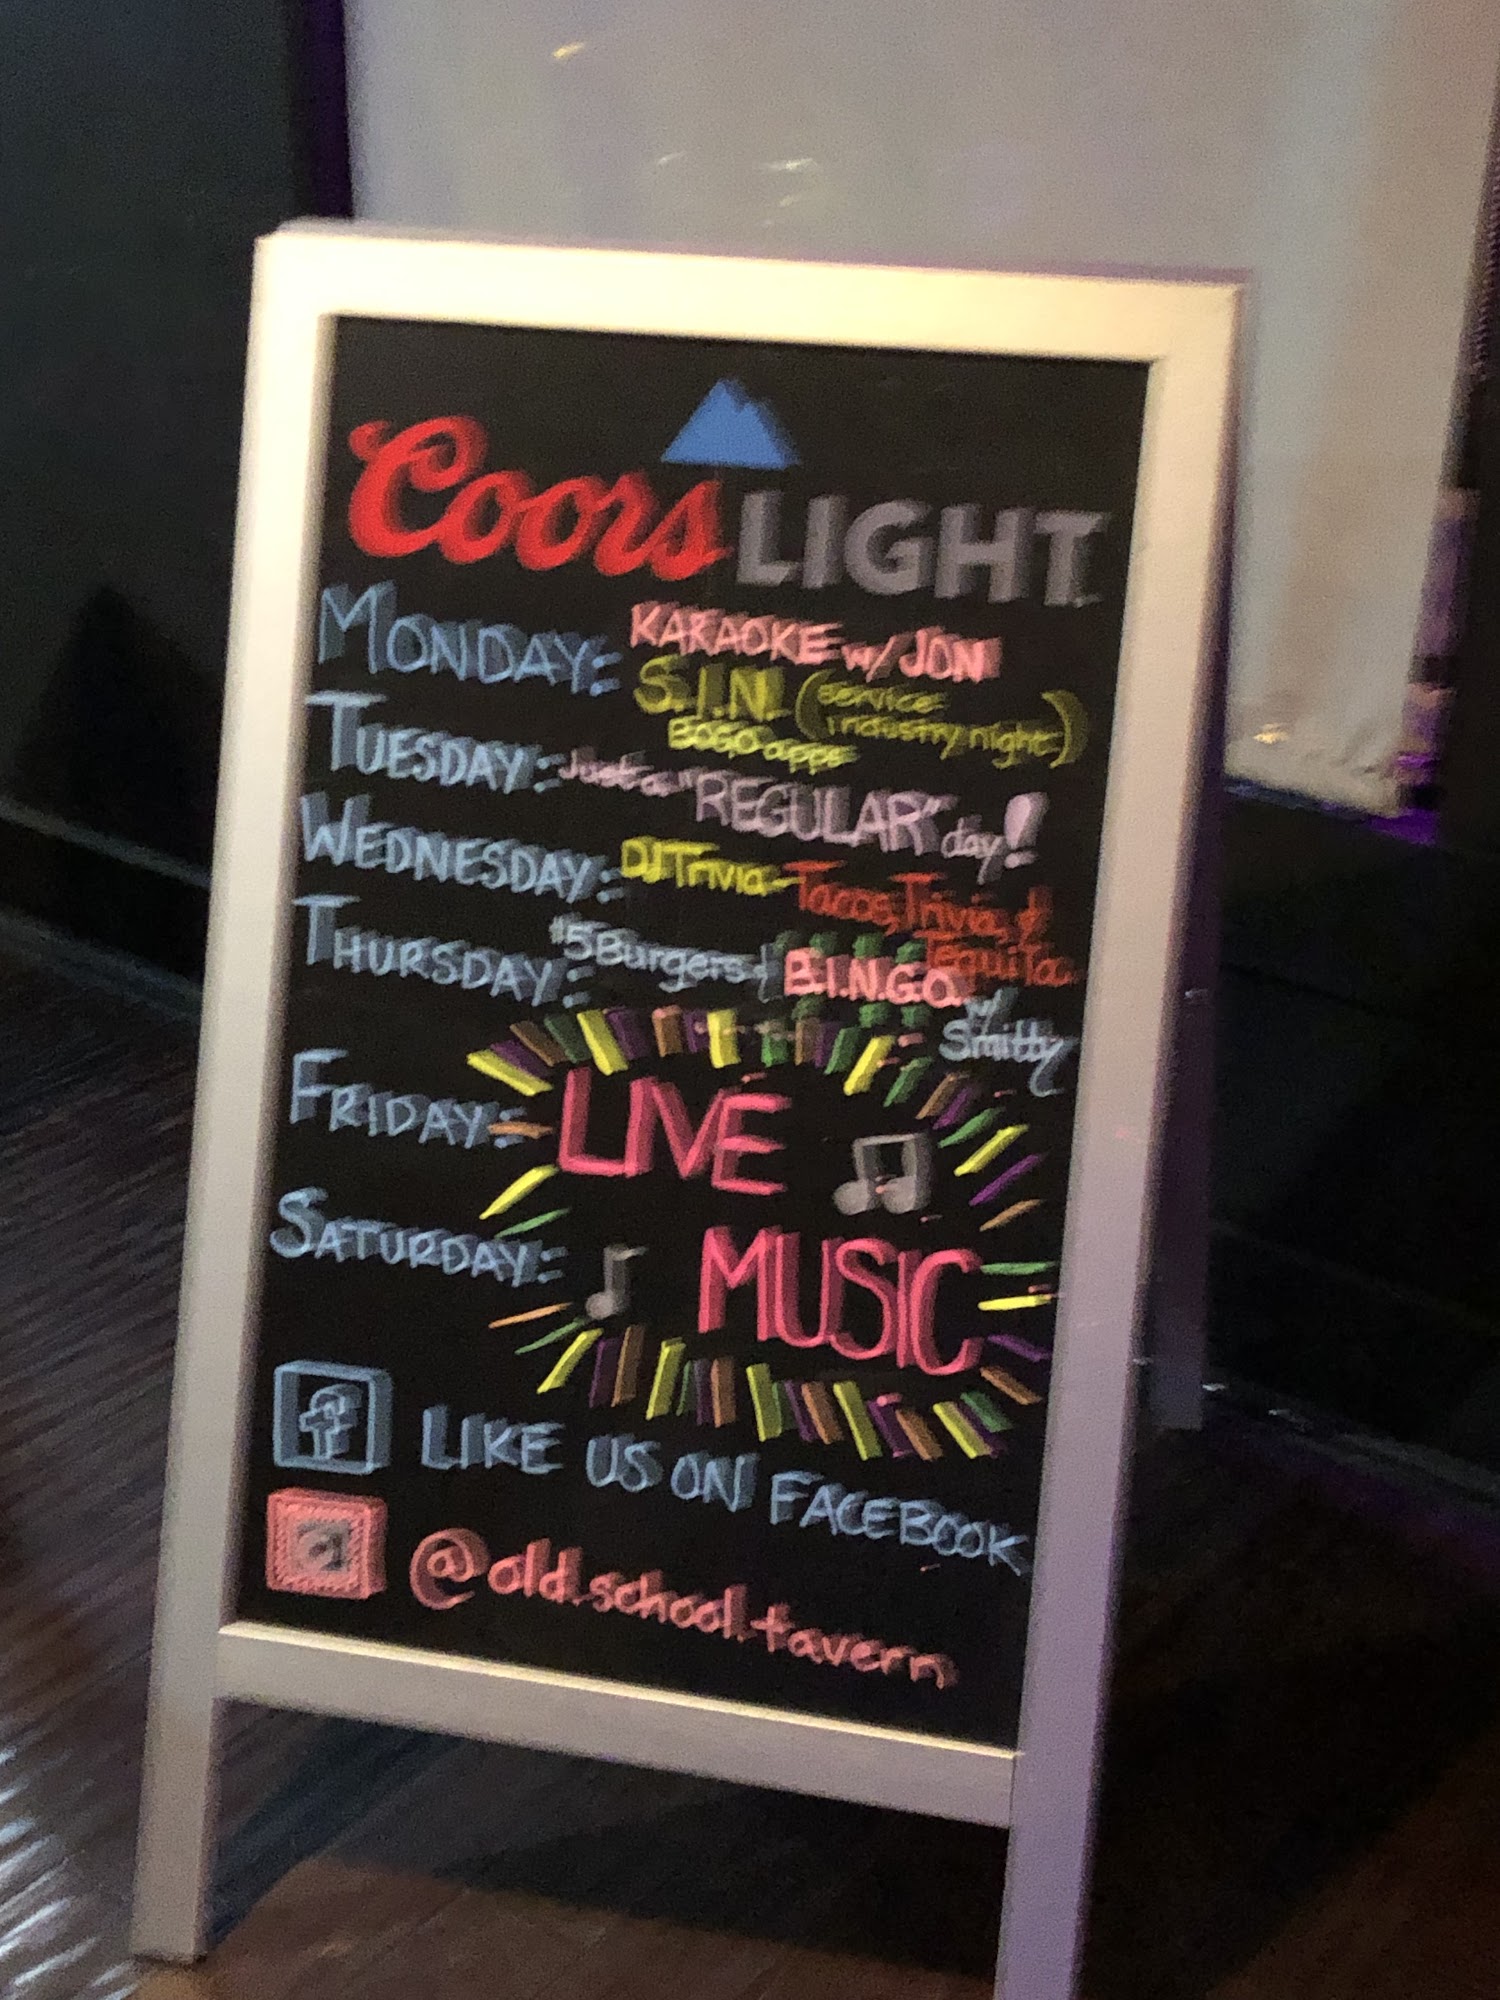 Coors LIGHT
MONDAY: KARAOKE w/ JON
S.I.N. (service industry night)
BOGO apps
TUESDAY: Just a "REGULAR" day!
WEDNESDAY: DJ Trivia - Tacos, Trivia, &
Tequila
THURSDAY: $5 Burgers & B.I.N.G.O. w/
Smitty
FRIDAY: LIVE
SATURDAY: MUSIC
f LIKE US ON FACEBOOK
@old.school.tavern